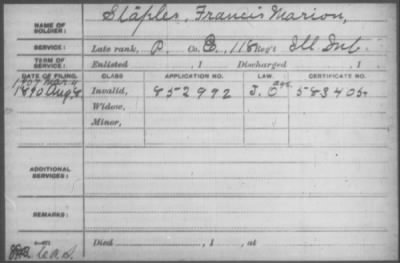 NAME OF SOLDIER: Staples, Francis Marion,
SERVICE: Late rank, P. Co. B, 118 Reg't Ill Inf.
TERM OF SERVICE: Enlisted , 1 Discharged , 1
DATE OF FILING. CLASS APPLICATION NO. LAW. CERTIFICATE NO.
1907 Mar 4 age
1890 Aug 8 Invalid, 852992 J. O 583405
Widow,
Minor,
ADDITIONAL SERVICES:
REMARKS:
Died , 1 , at